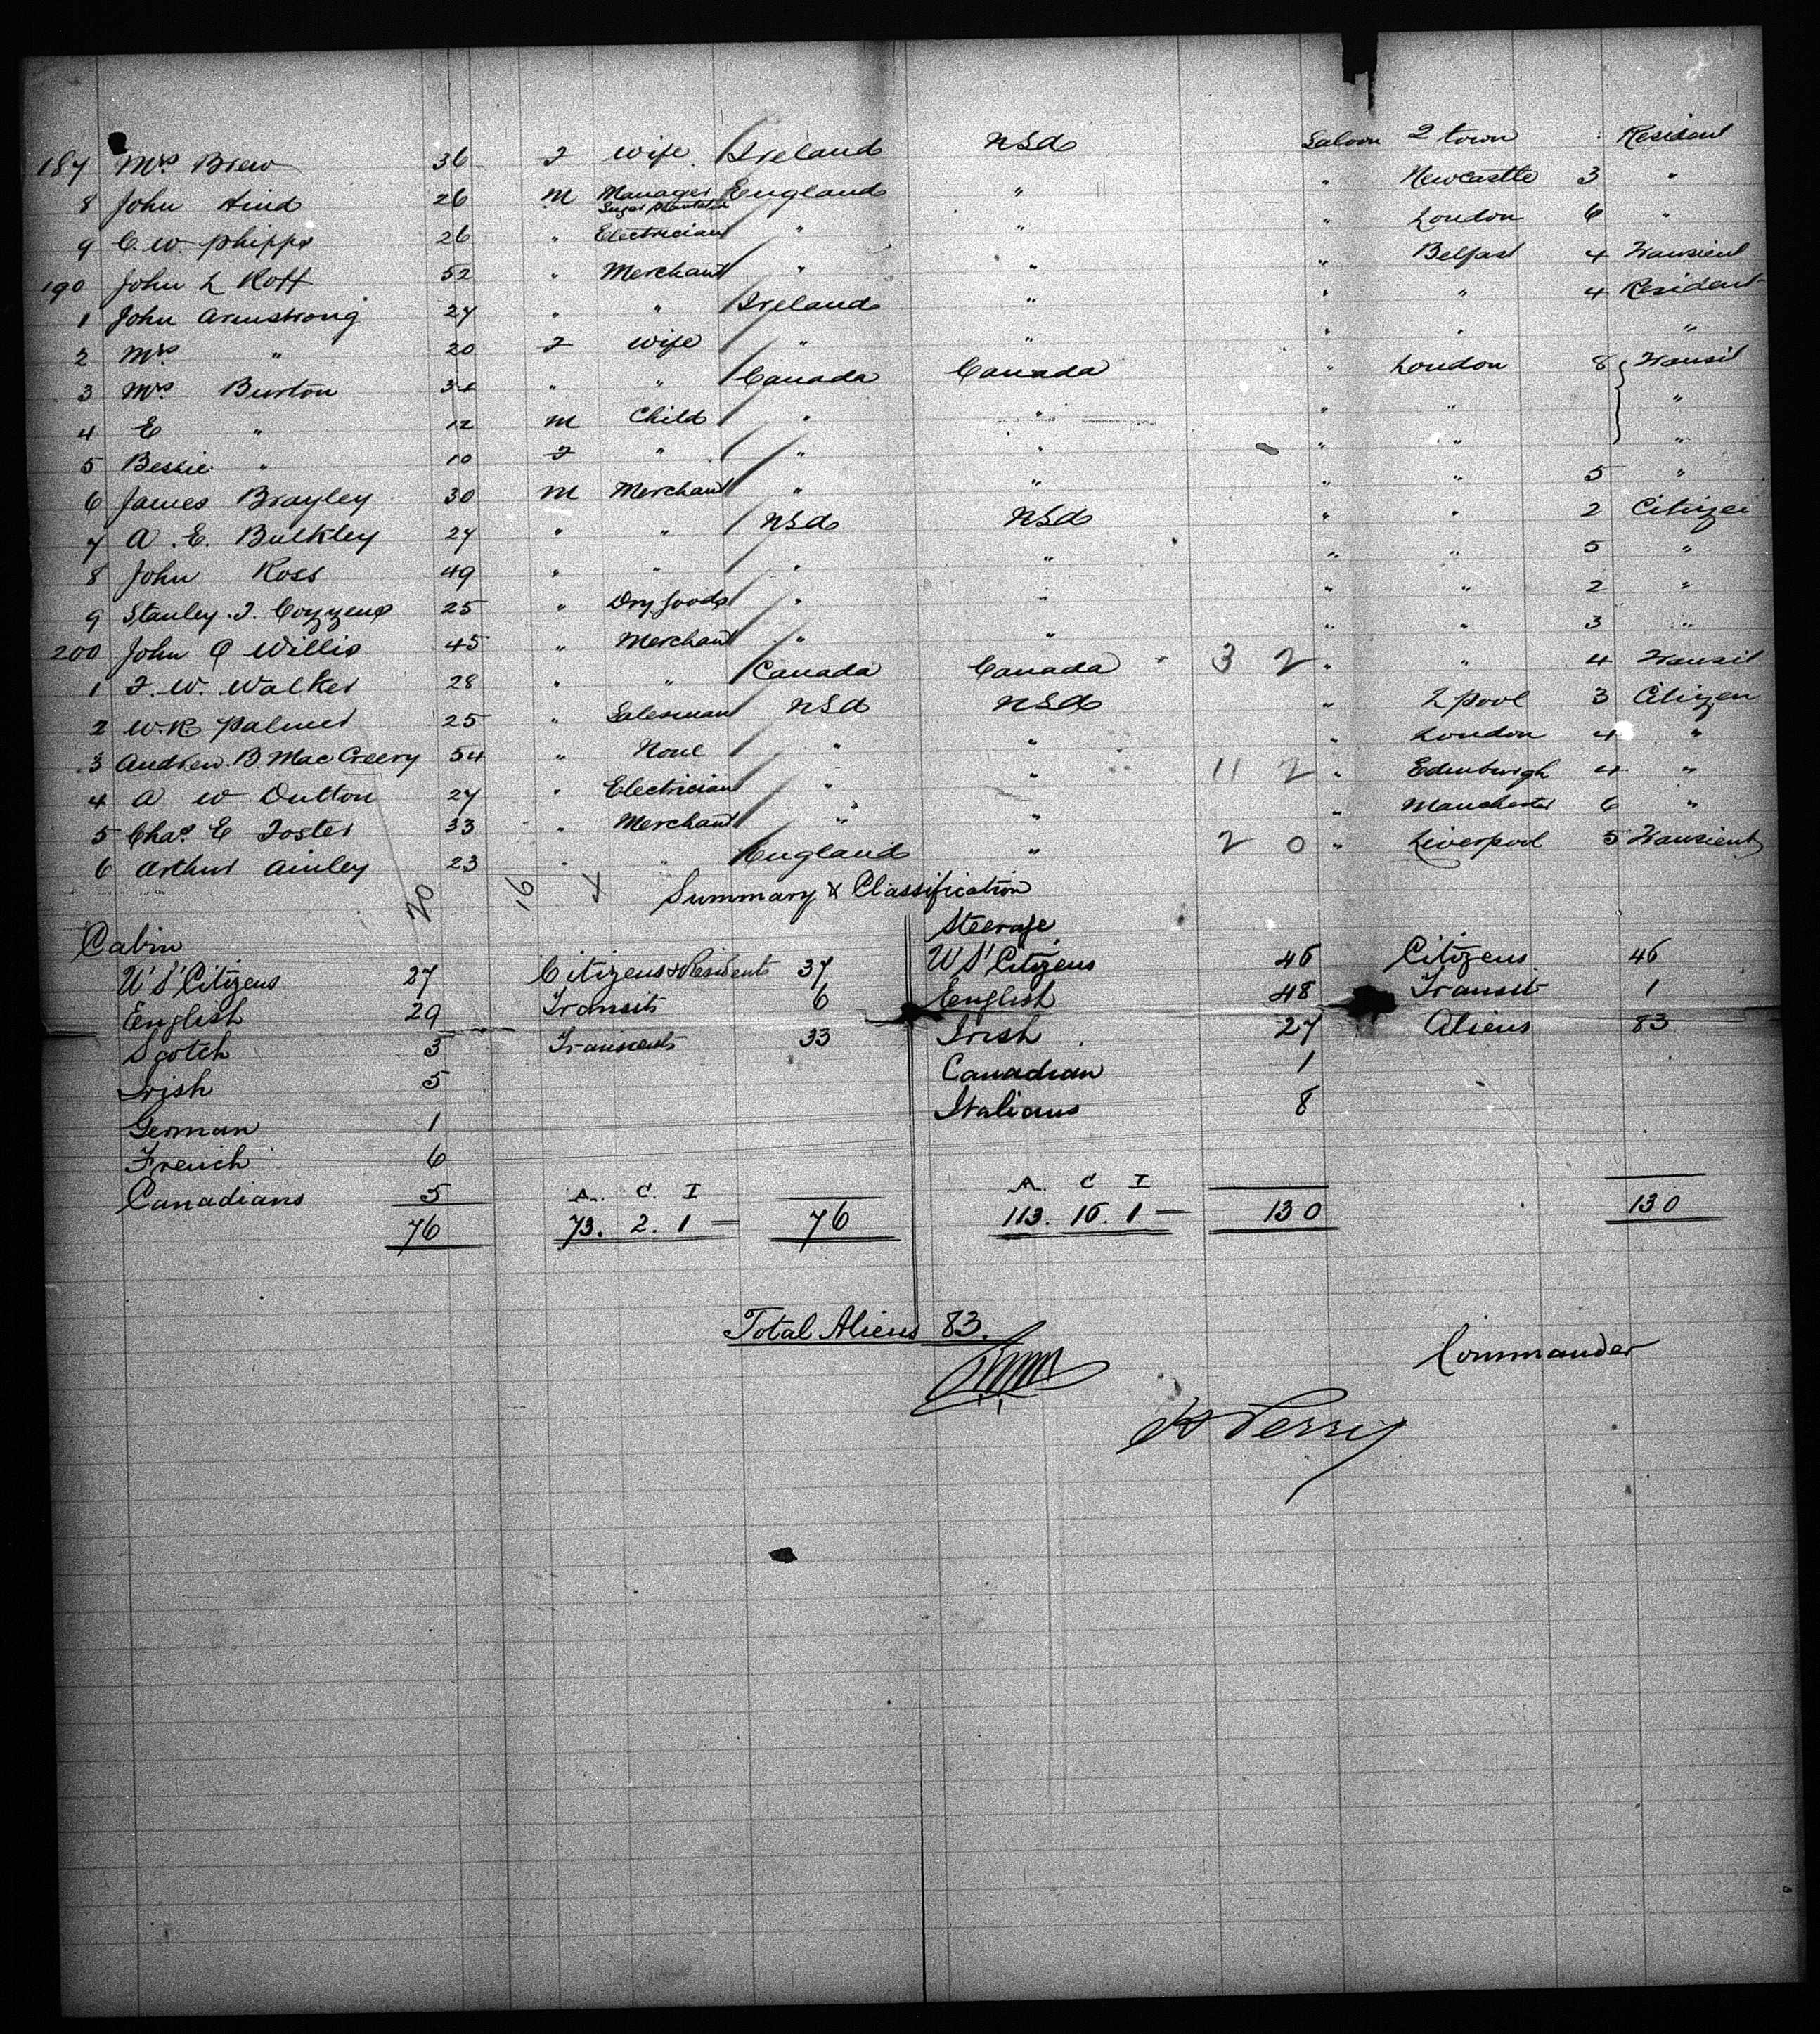 187 Mrs Brew 36 F Wife Ireland USA Saloon Q town Resident
8 John Hind 26 M Manager Sugar Plantation England " " Newcastle 3 "
9 C. W. Phipps 26 " Electrician " " " London 6 "
190 John L 52 " Merchant " " " Belfast 4 Transient
1 John Armstrong 27 " " Ireland " " " 4 Resident
2 Mrs " 20 F Wife " " " " "
3 Mrs Burton " " Canada Canada " London 8 Transit
4 E " 12 M Child " " " " "
5 Bessie " 10 F " " " " " "
6 James Brayley 30 M Merchant " " " " 5 "
7 A. E. Bulkley 27 " " USA USA " " 2 Citizen
8 John Ross 49 " " " " " " 5 "
9 Stanley. F. Cozzens 25 " Dry Goods " " " " 2 "
200 John Q Willis 45 " Merchant " " " " 3 "
1 F. W. Walker 28 " " Canada Canada 3 2 " " 4 Transit
2 W. R Palmer 25 " Salesman USA USA " L pool 3 Citizen
3 Andrew. B. MacCreery 54 " None " " " London 4 "
4 A W Dutton 27 " Electrician " " 11 2 " Edinburgh 4 "
5 Chas E Foster 33 " Merchant " " " Manchester 6 "
6 Arthur Ainley 23 " " England " 2 0 " Liverpool 5 Transient
20 16 4 Summary & Classification
Cabin Steerage
U S Citizens 27 Citizens & Residents 37 U S Citizens 46 Citizens 46
English 29 Transits 6 English 48 Transit 1
Scotch 3 Transients 33 Irish 27 Aliens 83
Irish 5 Canadian 1
German 1 Italians 8
French 6
Canadians 5 A. C. I A. C I
76 73. 2. 1 — 76 113. 16. 1 — 130 130
Total Aliens 83.
Commander
H Perry